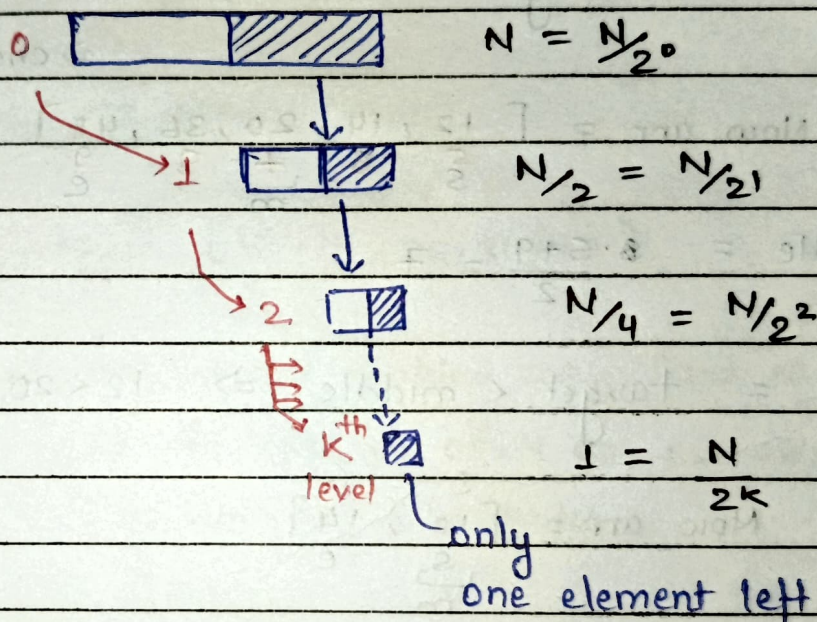 0 N = N/2⁰
1 N/2 = N/2¹
2 N/4 = N/2²
kth level 1 = N/2k
only
one element left